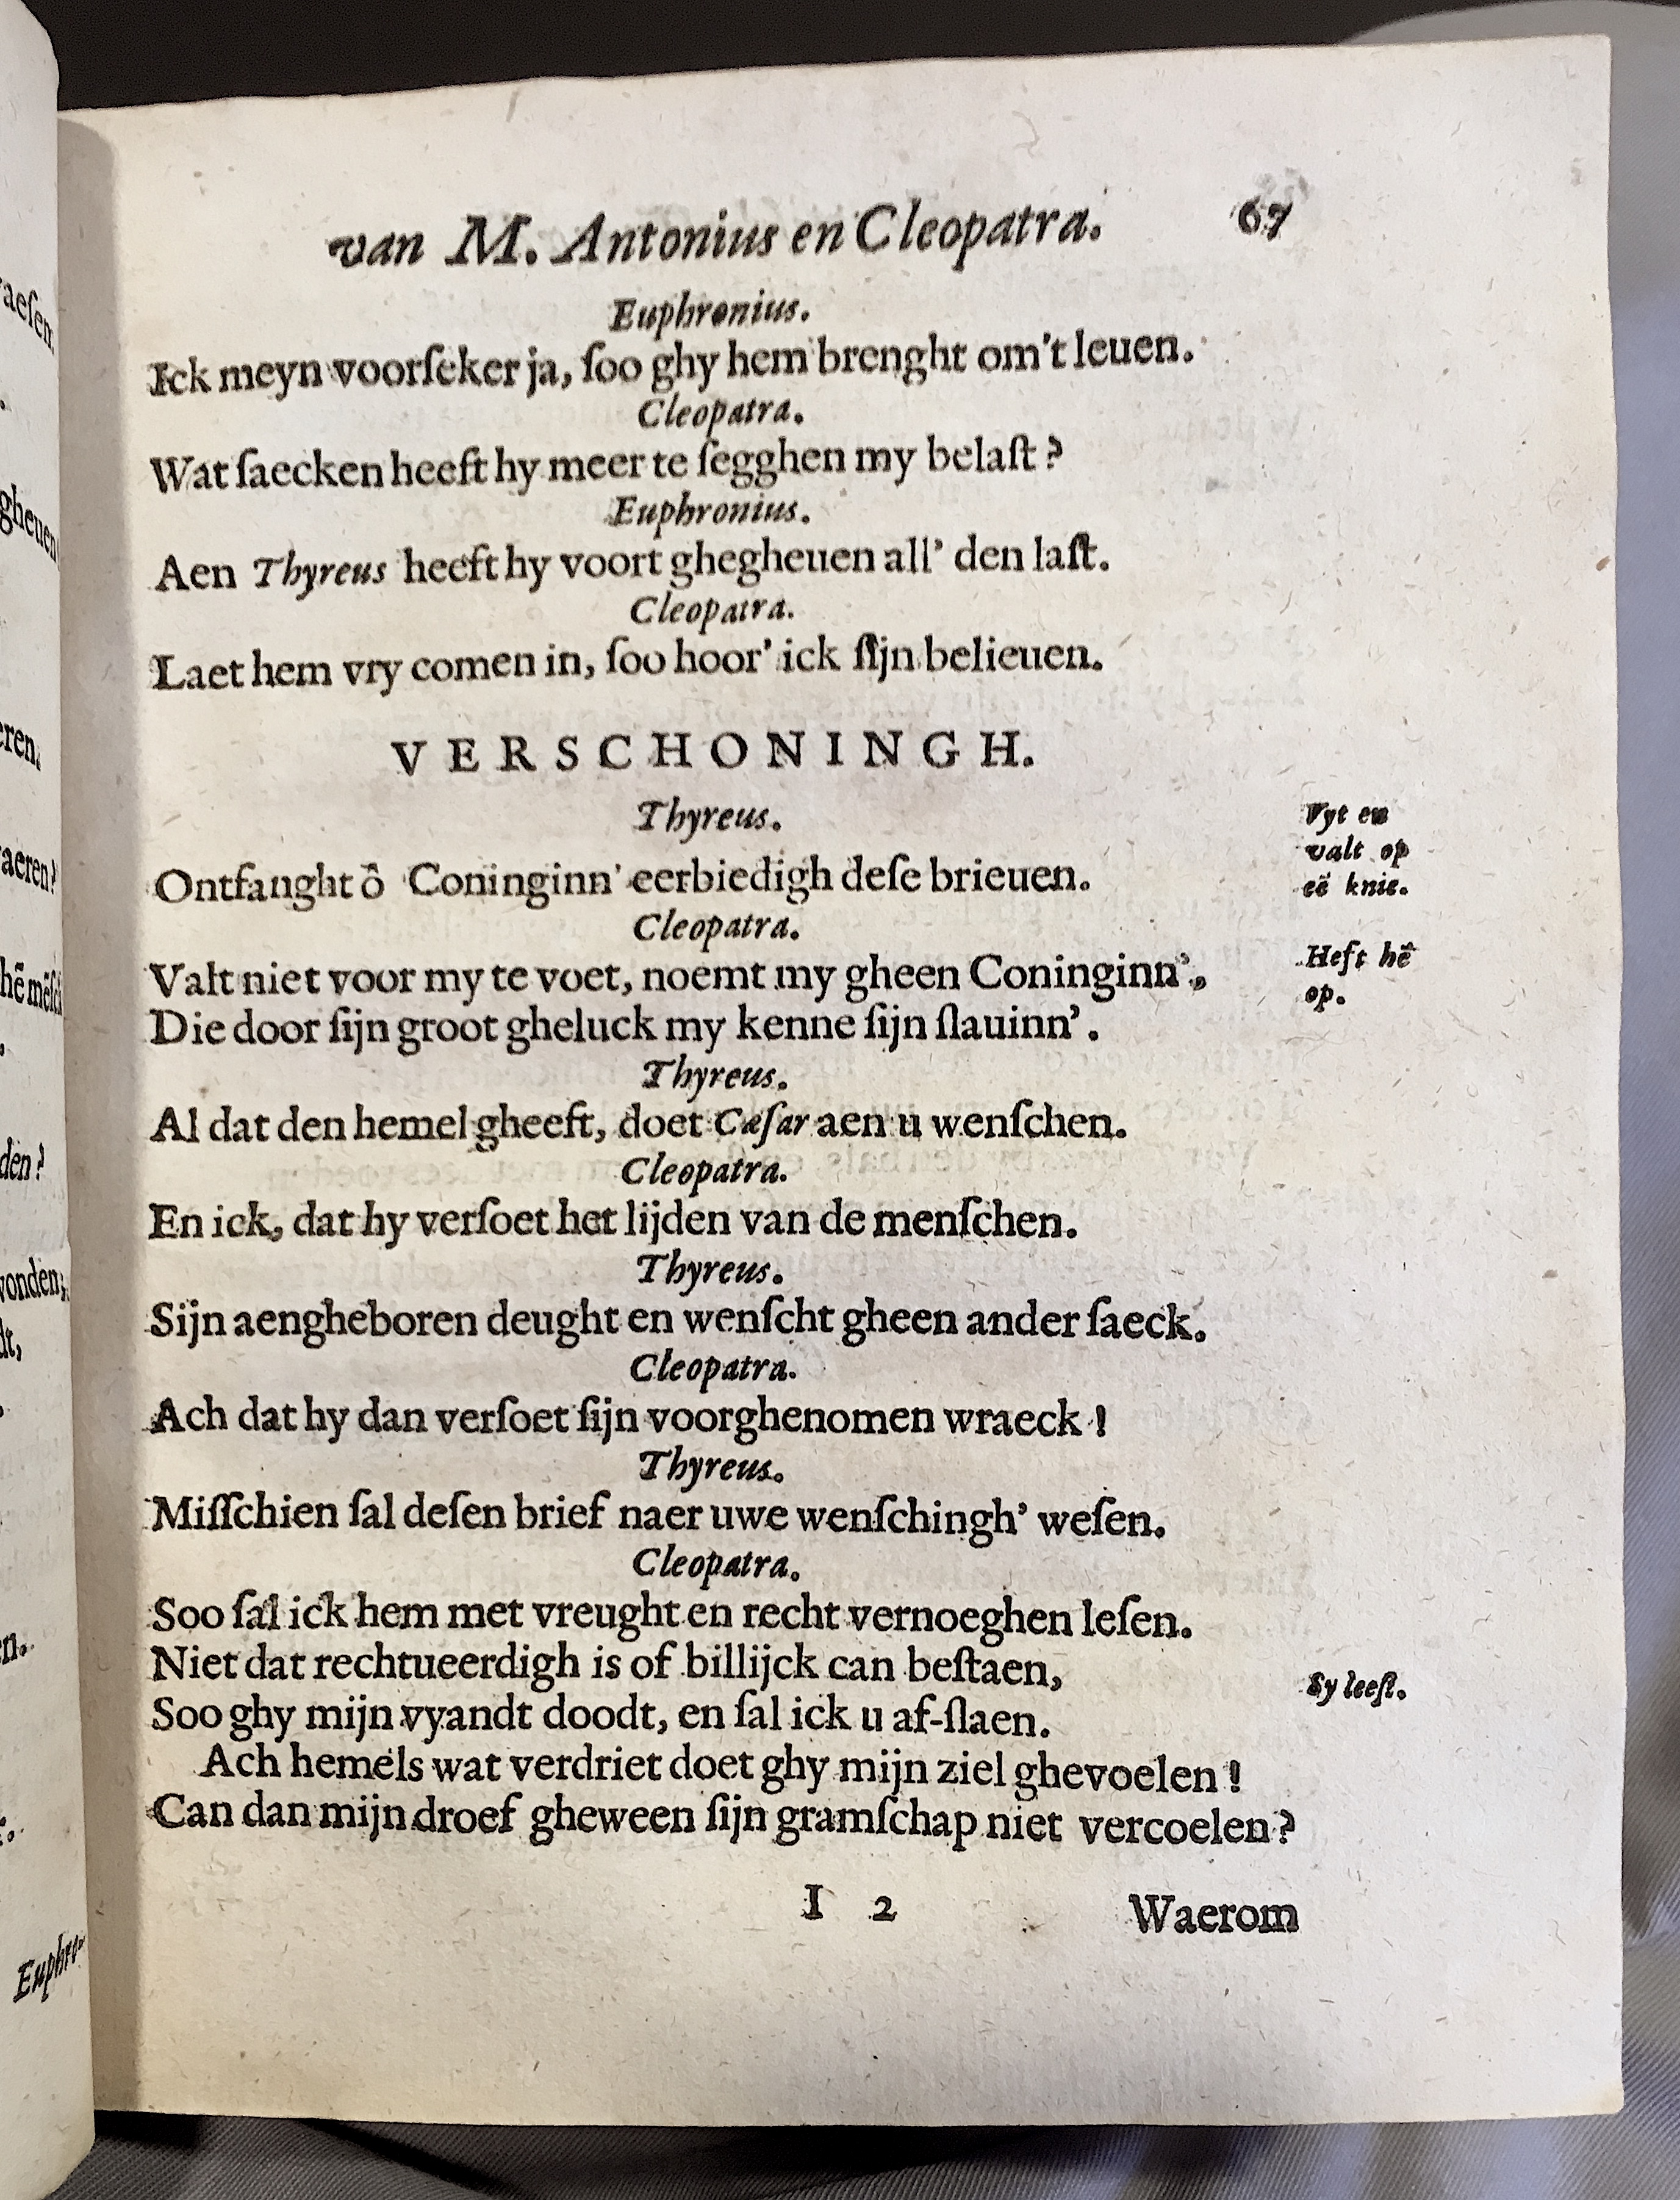 van M. Antonius en Cleopatra. 67
Euphronius.
Ick meyn voorſeker ja, ſoo ghy hem brenght om't leuen.
Cleopatra.
Wat ſaecken heeft hy meer te ſegghen my belaſt?
Euphronius.
Aen Thyreus heeft hy voort ghegheuen all' den laſt.
Cleopatra.
Laet hem vry comen in, ſoo hoor' ick ſijn belieuen.
VERSCHONINGH.
Thyreus.
Vyt en
valt op
eē knie.
Ontfanght ô Coninginn' eerbiedigh deſe brieuen.
Cleopatra.
Valt niet voor my te voet, noemt my gheen Coninginn',
Heft hē
op.
Die door ſijn groot gheluck my kenne ſijn ſlauinn'.
Thyreus.
Al dat den hemel gheeft, doet Cæſar aen u wenſchen.
Cleopatra.
En ick, dat hy verſoet het lijden van de menſchen.
Thyreus.
Sijn aengheboren deught en wenſcht gheen ander ſaeck.
Cleopatra.
Ach dat hy dan verſoet ſijn voorghenomen wraeck!
Thyreus.
Miſſchien ſal deſen brief naer uwe wenſchingh' weſen.
Cleopatra.
Soo ſal ick hem met vreught en recht vernoeghen leſen.
Niet dat rechtueerdigh is of billijck can beſtaen,
Sy leeſt.
Soo ghy mijn vyandt doodt, en ſal ick u af-ſlaen.
Ach hemels wat verdriet doet ghy mijn ziel ghevoelen!
Can dan mijn droef gheween ſijn gramſchap niet vercoelen?
I 2 Waerom